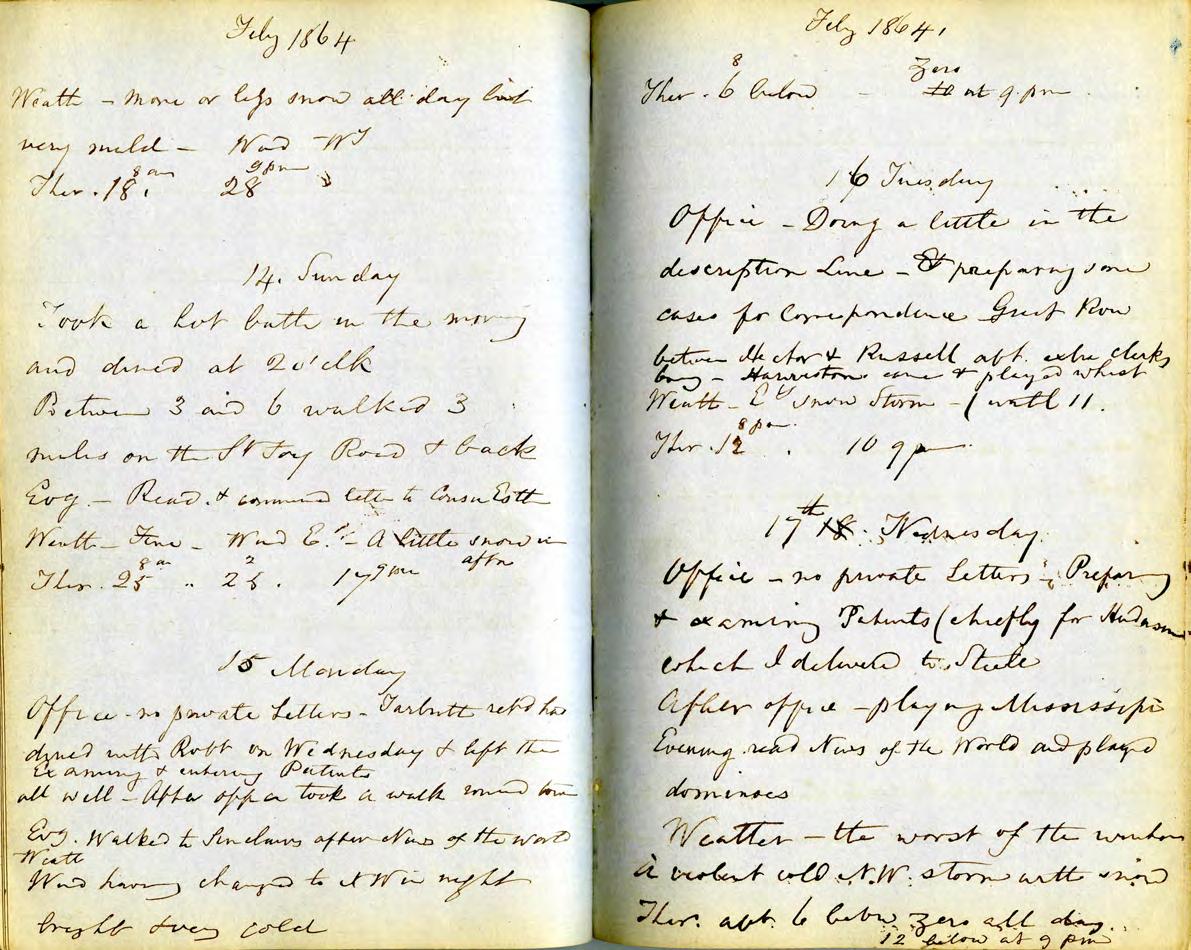 Feby 1864
Weath - more or less snow all day but
very mild - Wind - W
8 am 9 pm
Ther. 18. 28
14. Sunday
Took a hot bath in the morning
and dined at 2 o'clk
Between 3 and 6 walked 3
miles on the St Foy Road & back
Evg - Read. & commenced letter to Cousin Esth
Weath - Fine - Wind Ely - A little snow in
aftn
8 am 2 9 pm
Ther. 25 .. 26. 17
15 Monday
Office - no private Letters - Tarbutt retd has
dined with Robt on Wednesday & left them
Examining & entering Patents
all well - After office took a walk round town
Evg. Walked to Sinclairs after News of the World
Weath
Wind having changed to NW in night
bright & very cold
Feby 1864.
8 Zero
Ther. 6 below - at 9 pm
16 Tuesday
Office - Doing a little in the
description Line - & preparing some
cases for Correspondence Great Row
between Hector & Russell abt. extra clerks
Evg - came & played whist
Weath - Ely snow Storm - ( until 11.
8 pm.
Ther. 12 . 10 9 pm
17th 18. Wednesday
Office - no private Letters - Preparing
& examining Patents (chiefly for
which I delivered to Steele
After office - playing Mississipi
Evening read News of the World and played
dominoes
Weather - the worst of the winter
A violent cold N.W. storm with snow
Ther. abt. 6 below zero all day..
12 below at 9 pm